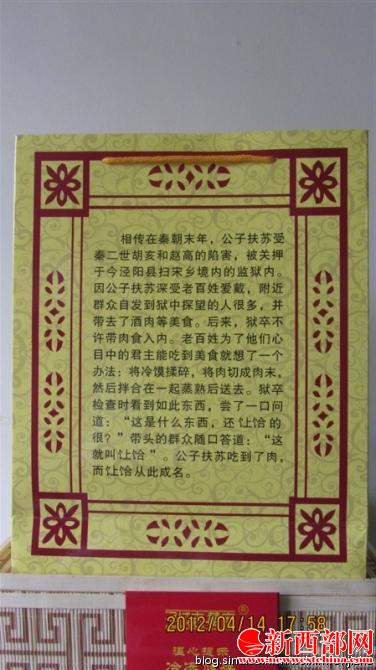 新西部网
www.newxibu.com
相传在秦朝末年，公子扶苏受
秦二世胡亥和赵高的陷害，被关押
于今泾阳县扫宋乡境内的监狱内。
因公子扶苏深受老百姓爱戴，附近
群众自发到狱中探望的人很多，并
带去了酒肉等美食。后来，狱卒不
许带肉食入内。老百姓为了他们心
目中的君主能吃到美食就想了一个
办法：将冷馍揉碎，将肉切成肉末，
然后拌合在一起蒸熟后送去。狱卒
检查时看到如此东西，尝了一口问
道：“这是什么东西，还饣上饸的
很？”带头的群众随口答道：“这
就叫饣上饸”。公子扶苏吃到了肉，
而饣上饸从此成名。
®
2012/04/14 17:58
温心提示
新西部网
blog.sin